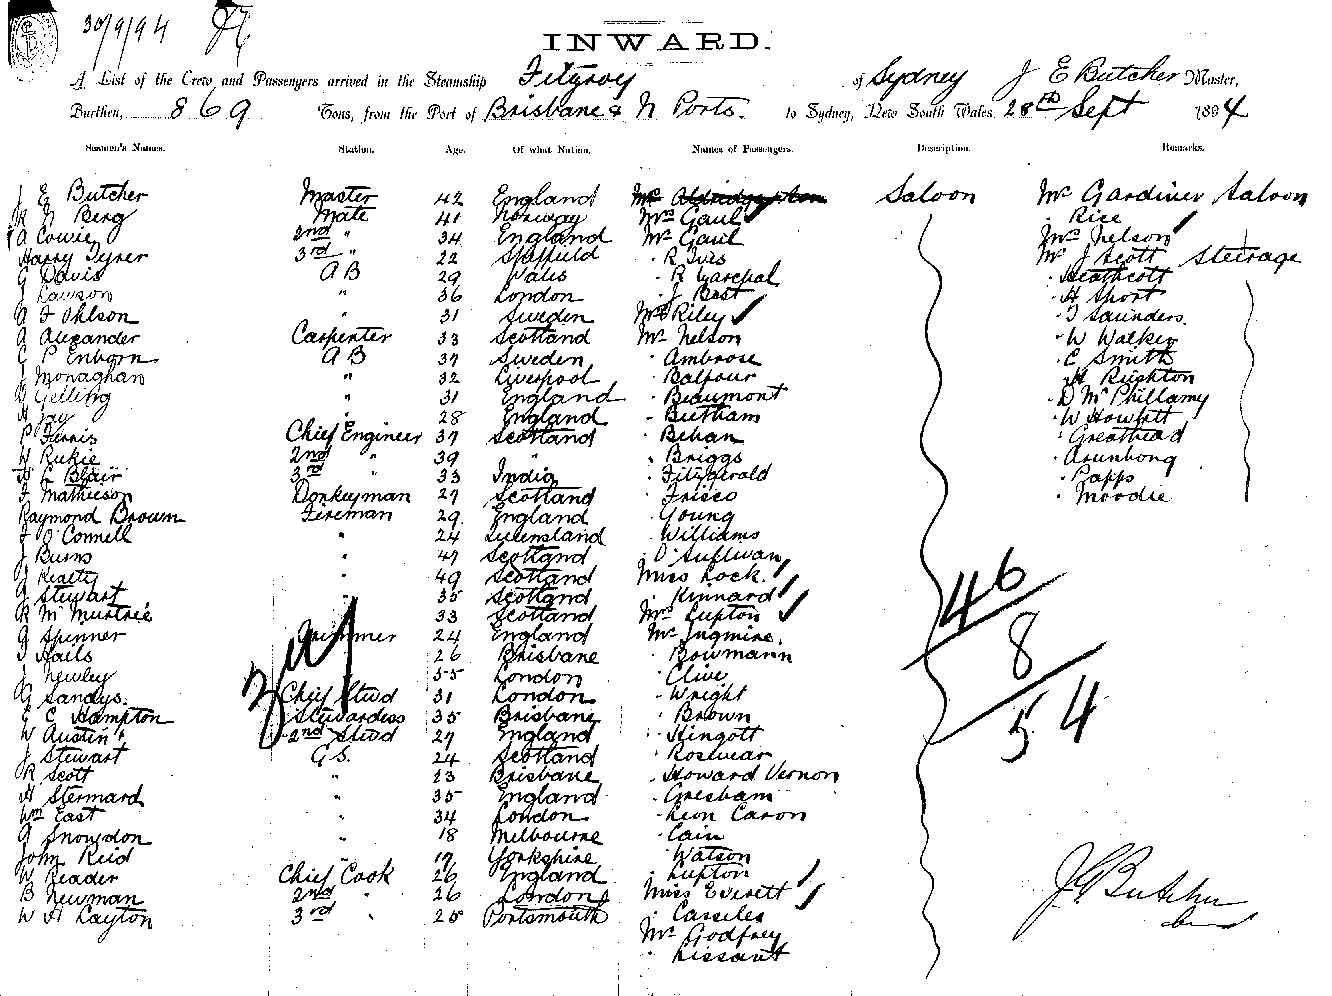 30/9/94
INWARD.
A List of the Crew and Passengers arrived in the Steamship Fitzroy of Sydney J E Butcher Master,
Burthen, 869 Tons, from the Port of Brisbane & N Ports. to Sydney, New South Wales 28th Sept 1894
Seamen's Names. Station. Age. Of what Nation. Names of Passengers. Description. Remarks.
J E Butcher Master 42 England Saloon Mr Gardiner Saloon
Berg Mate 41 Norway Mrs Gaul · Rice
A Cowie 2nd " 34 England Mr Gaul Mrs Nelson
Harry Tyner 3rd " 22 Sheffield · R Ives Mr J Scott Steerage
G Davis A B 29 Wales · R · Heathcott
J Lawson " 36 London · J Best · H Short
A F Ohlson " 31 Sweden Riley · T Saunders.
A Alexander Carpenter 33 Scotland Mr Nelson · W Walker
C P Enborn A B 37 Sweden · Ambrose · E Smith
J Monaghan " 32 Liverpool · Balfour · H Rushton
Gelling " 31 England · Beaumont · D McPhillamy
H Jay " 28 England · Beetham · W Howlett
P Ferris Chief Engineer 37 Scotland · Behan · Greathead
W Rukie 2nd " 39 " · Briggs · Arunbong
Blair 3rd " 33 India · Fitzgerald · Papps
F Mathieson Donkeyman 27 Scotland · Frisco · Moodie
Raymond Brown Fireman 29 England · Young
F O'Connell " 24 Queensland · Williams
J Burns " 47 Scotland · O'Sullivan
J Kealty " 49 Scotland Miss Lock.
A Stewart " 35 Scotland · Kinnard
R McMurtrie " 33 Scotland Mrs Lupton
G Spinner Trimmer 24 England Mr Ingmire.
T Hails 26 Brisbane · Bowmann
J Newley 55 London · Clive
G Sandys. Chief Stwd 31 London · Wright
E C Hampton Stewardess 35 Brisbane · Brown
W Austin 2nd Stwd 27 England · Hingott
J Stewart G.S. 24 Scotland · Rosewear
R Scott " 23 Brisbane · Howard Vernon
H Stermard " 35 England · Gresham
Wm East " 34 London · Leon Caron
A Snowdon " 18 Melbourne · Cain
John Reid " 17 Yorkshire · Watson
W Reader Chief Cook 26 England · Lupton
B Newman 2nd " 26 London Miss Everett
W H Layton 3rd " 25 Portsmouth · Casseles
Mr Godfrey
· Lissant
46
8
54
J E Butcher